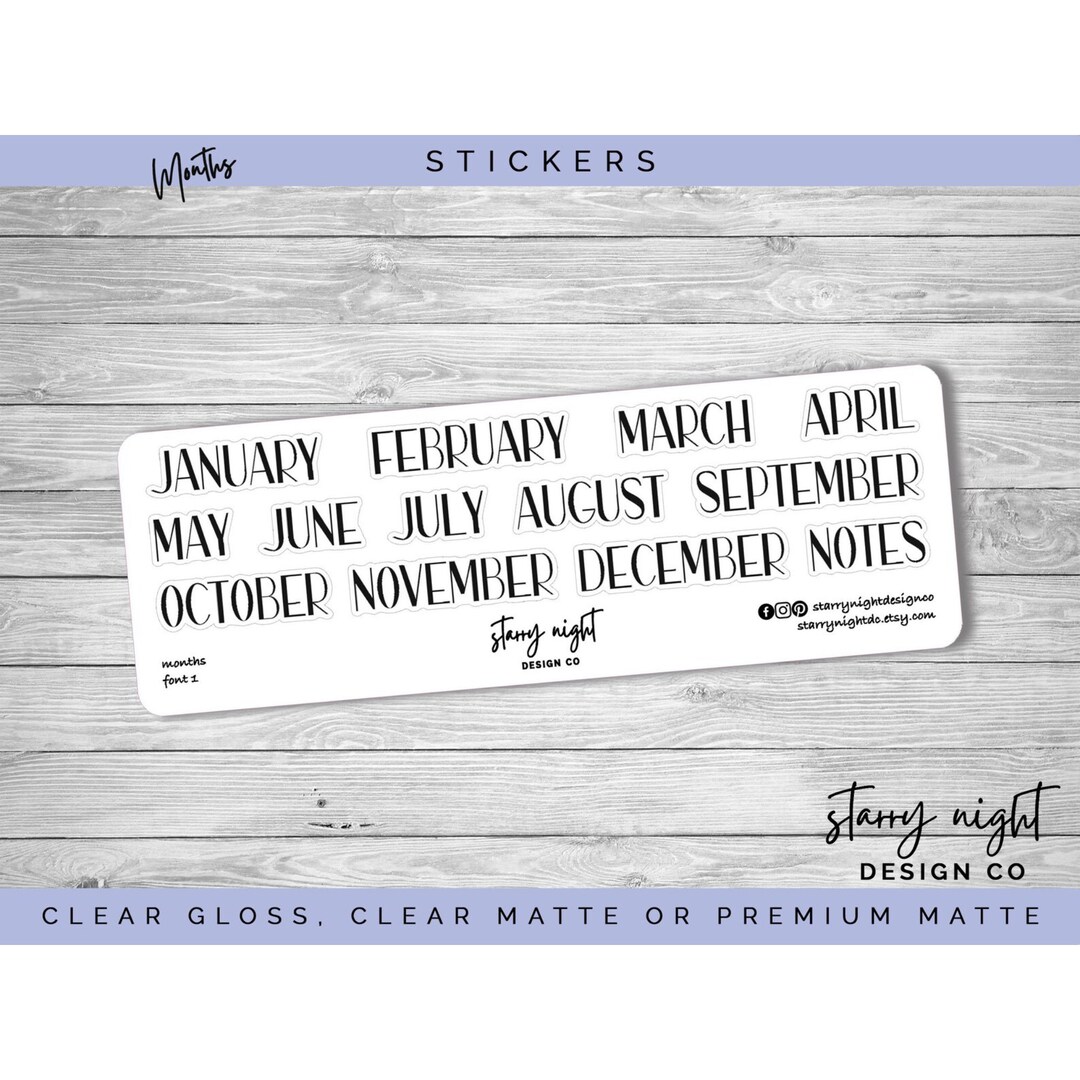 Months STICKERS
JANUARY FEBRUARY MARCH APRIL
MAY JUNE JULY AUGUST SEPTEMBER
OCTOBER NOVEMBER DECEMBER NOTES
starrynightdesignco
starrynightdc.etsy.com
starry night
DESIGN CO
months
font 1
starry night
DESIGN CO
CLEAR GLOSS, CLEAR MATTE OR PREMIUM MATTE